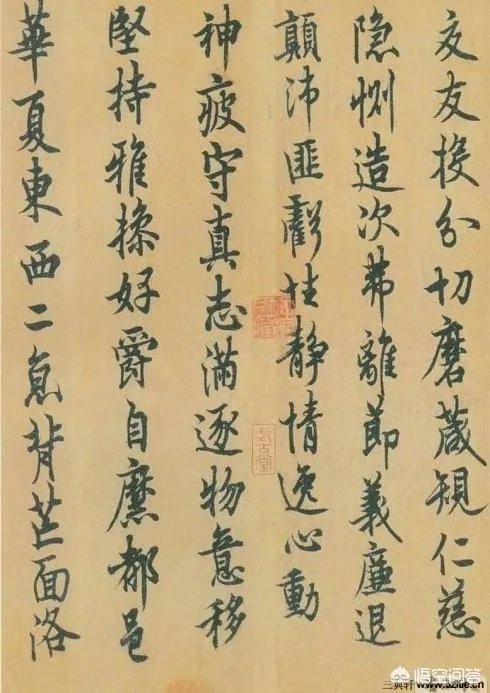 交友投分切磨箴規仁慈
隐惻造次弗離節義廉退
顛沛匪虧性靜情逸心動
神疲守真志滿逐物意移
堅持雅操好爵自縻都邑
華夏東西二京背芒面洛
悟空问答